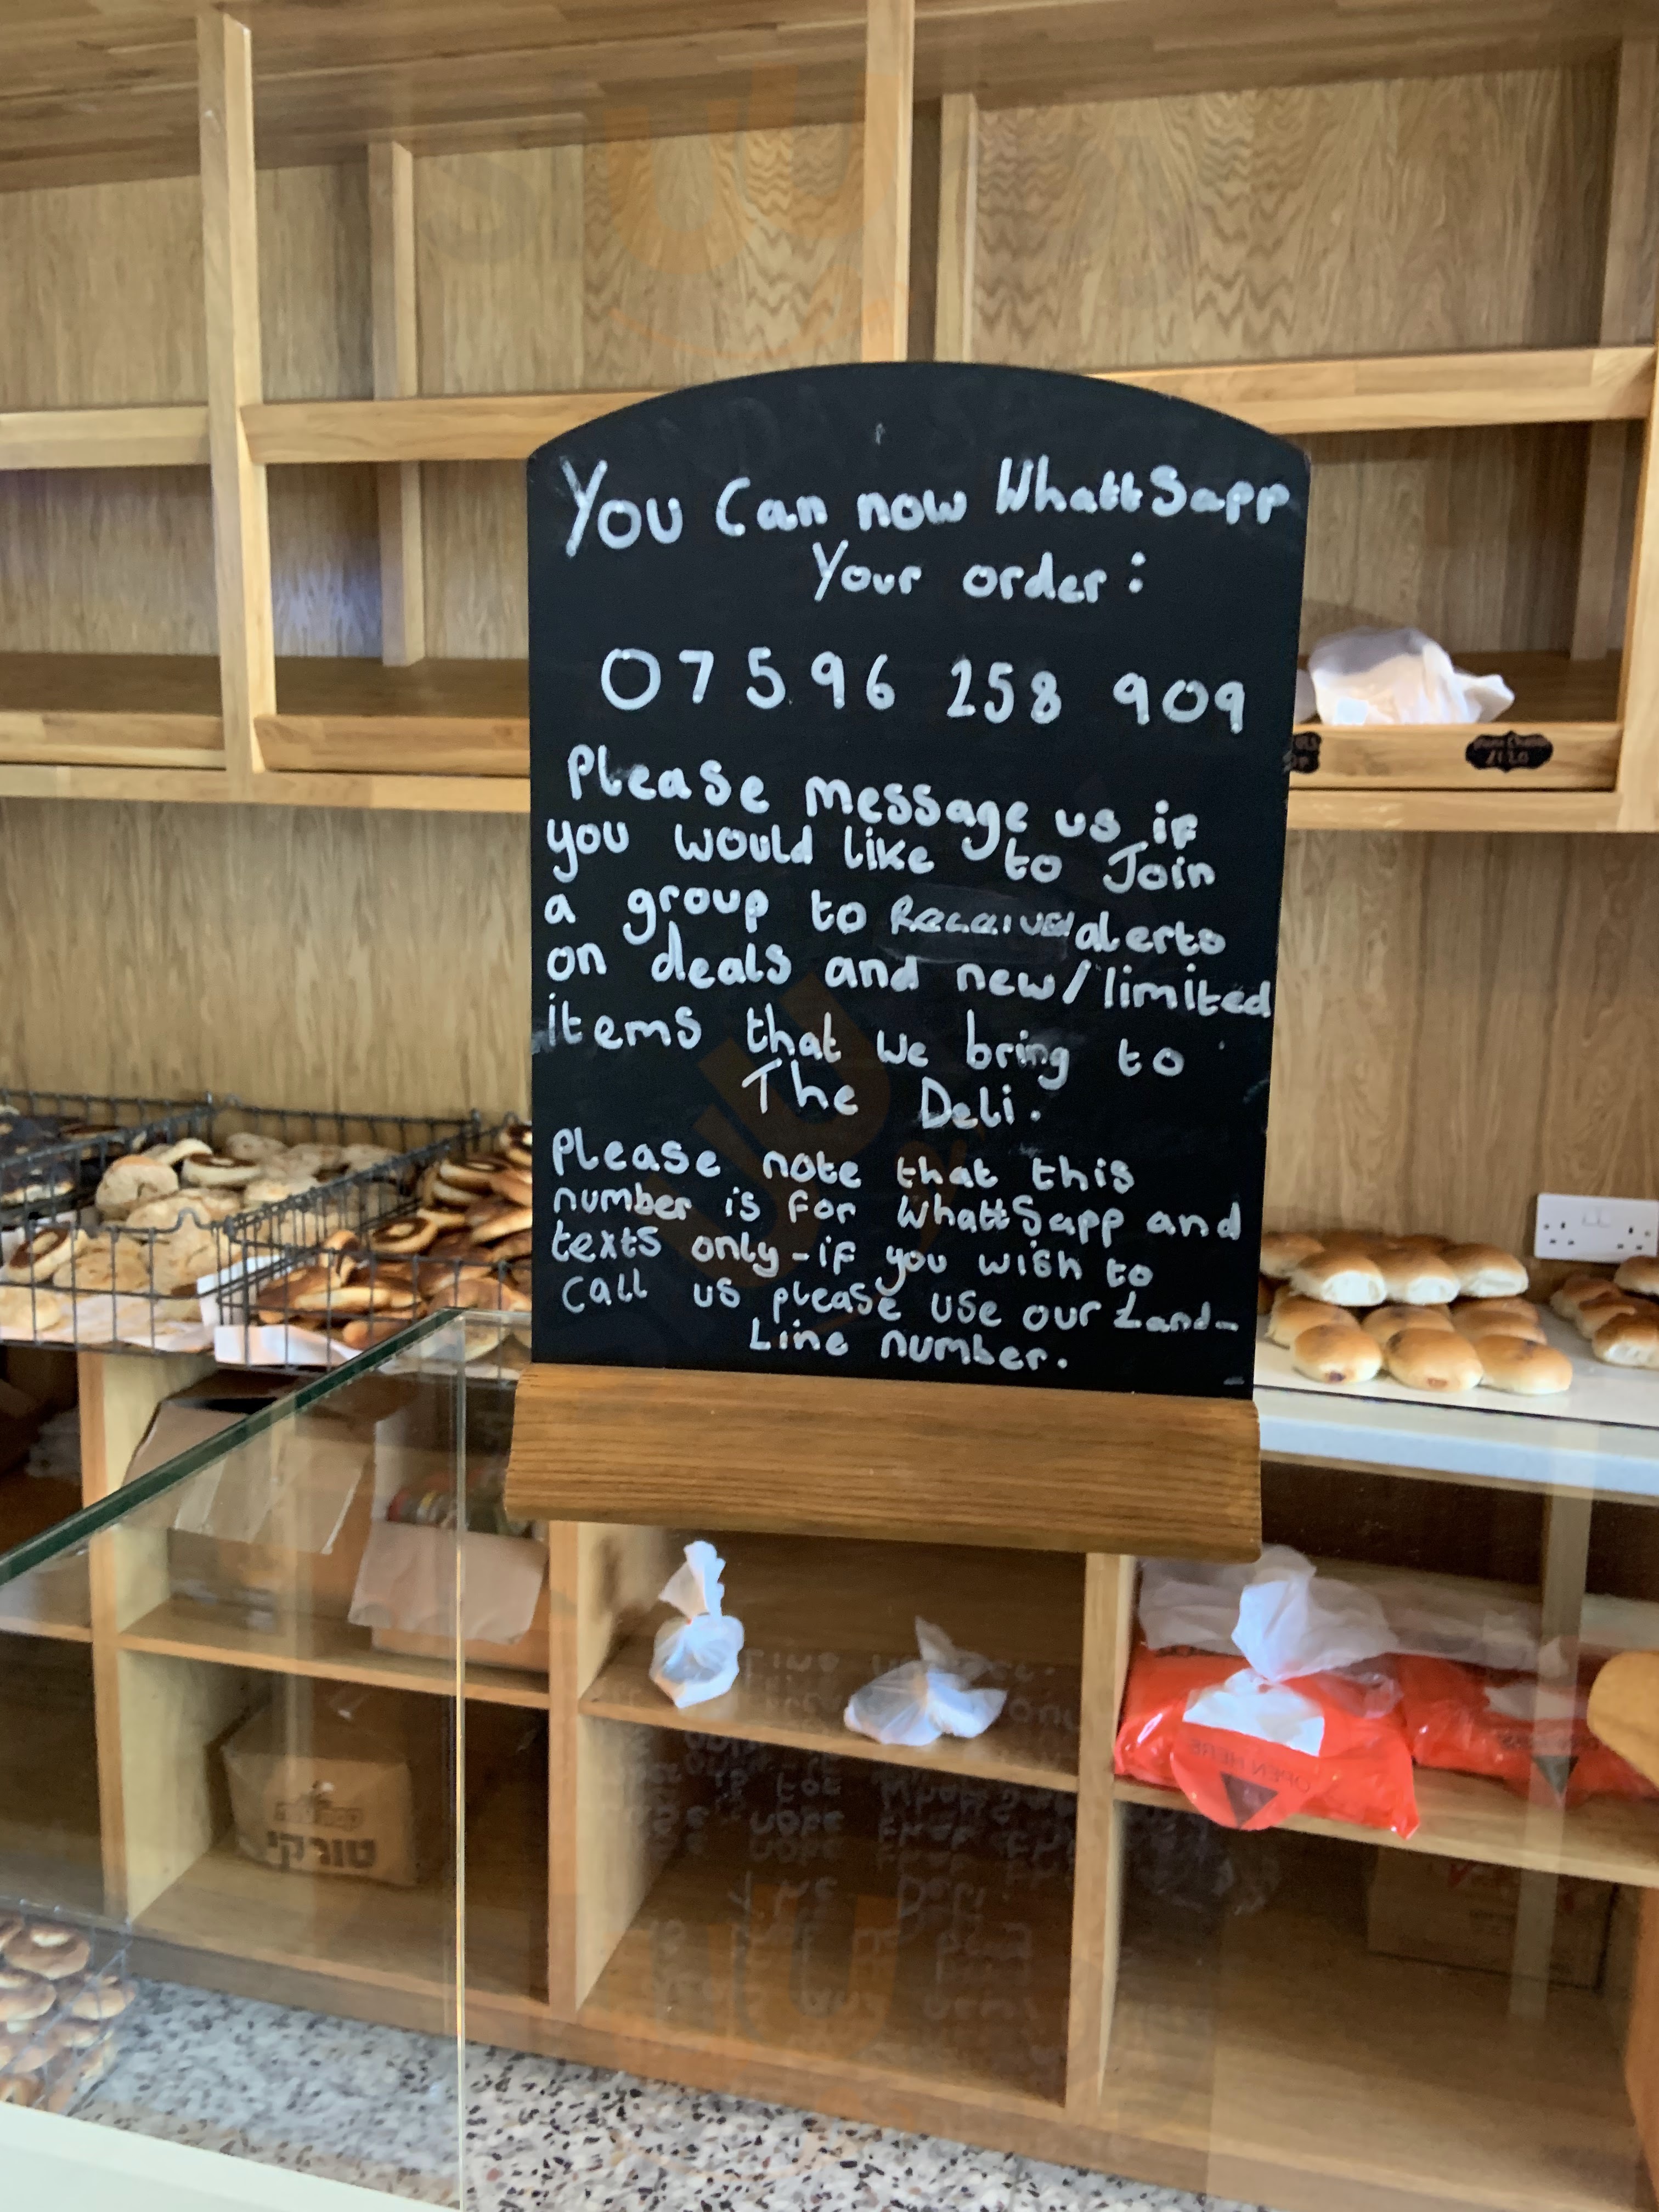 You Can now WhattSapp
Your order:
07596 258 909
Please message us if
you would like to Join
a group to Receive alerts
on deals and new/limited
items that we bring to
The Deli.
Please note that this
number is for WhattSapp and
texts only - if you wish to
call us please use our Land-
Line number.
£1.20
OPEN HERE
טורקי